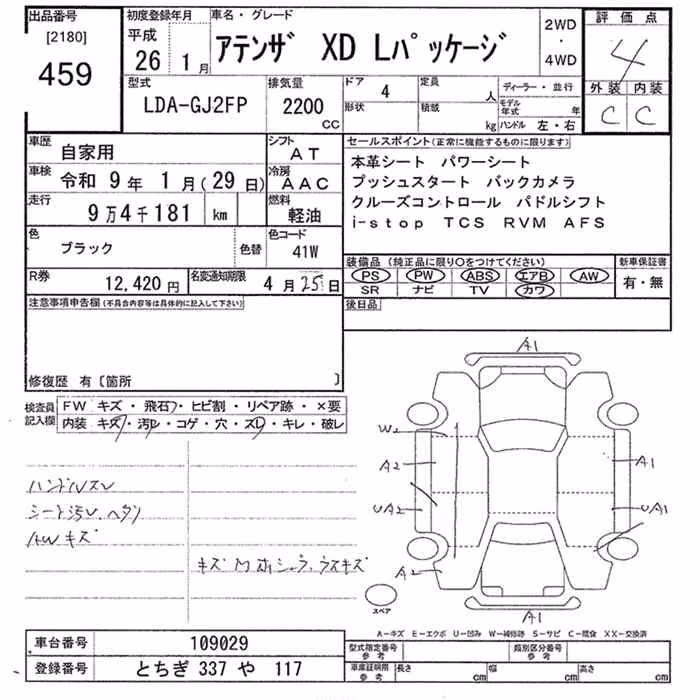 出品番号
[2180]
459
初度登録年月
平成
26 1月
車名・グレード
アテンザ XD Lパッケージ
2WD
・
4WD
評価点
4
外装 内装
C C
型式
LDA-GJ2FP
排気量
2200
cc
ドア 4
形状
定員 人
積載 kg
ディーラー・並行
モデル年式 年
ハンドル 左・右
車歴 自家用
シフト AT
車検 令和 9年 1月(29日)
冷房 AAC
走行 9万4千181 km
燃料 軽油
色 ブラック 色替
色コード 41W
R券 12,420円
名変通知期限 4月25日
セールスポイント(正常に機能するものに限ります)
本革シート パワーシート
プッシュスタート バックカメラ
クルーズコントロール パドルシフト
i-stop TCS RVM AFS
装備品(純正品に限り○をつけてください)
PS PW ABS エアB AW
SR ナビ TV カワ
新車保証書
有・無
後日品
注意事項申告欄(不具合内容等は具体的に記入して下さい)
修復歴 有〔箇所 〕
検査員記入欄
FW キズ・飛石・ヒビ割・リペア跡・×要
内装 キズ・汚レ・コゲ・穴・スレ・キレ・破レ
ハンドルスレ
シート汚レ、ヘタリ
AWキズ
キズ M ホシュウ、ウスキズ
A1
W2
A2
A1
UA2
UA1
A2
A1
スペア
A-キズ E-エクボ U-凹み W-補修跡 S-サビ C-腐食 XX-交換済
車台番号 109029
登録番号 とちぎ 337 や 117
型式指定番号 参考
類別区分番号 参考
車庫証明用 参考
長さ cm
幅 cm
高さ cm